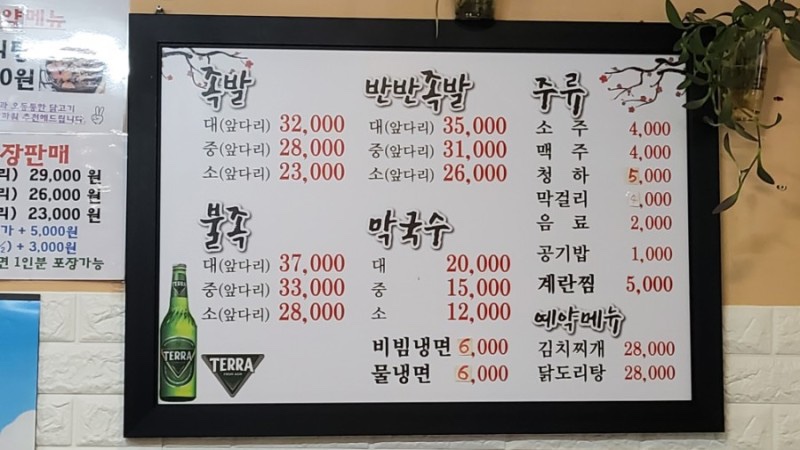 약메뉴
0원
장판매
리) 29,000 원
리) 26,000 원
리) 23,000 원
가 + 5,000원
½) + 3,000원
면 1인분 포장가능
족발
대(앞다리) 32,000
중(앞다리) 28,000
소(앞다리) 23,000
불족
대(앞다리) 37,000
중(앞다리) 33,000
소(앞다리) 28,000
TERRA
TERRA
반반족발
대(앞다리) 35,000
중(앞다리) 31,000
소(앞다리) 26,000
막국수
대 20,000
중 15,000
소 12,000
비빔냉면 6,000
물냉면 6,000
주류
소주 4,000
맥주 4,000
청하 5,000
막걸리 ,000
음료 2,000
공기밥 1,000
계란찜 5,000
예약메뉴
김치찌개 28,000
닭도리탕 28,000